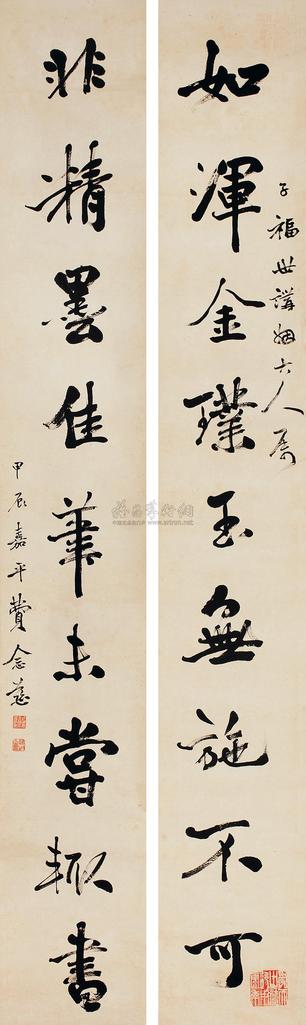 子福世講姻大人屬
如渾金璞玉無施不可
非精墨佳筆未嘗輒書
甲辰嘉平費念慈
雅昌藝術網